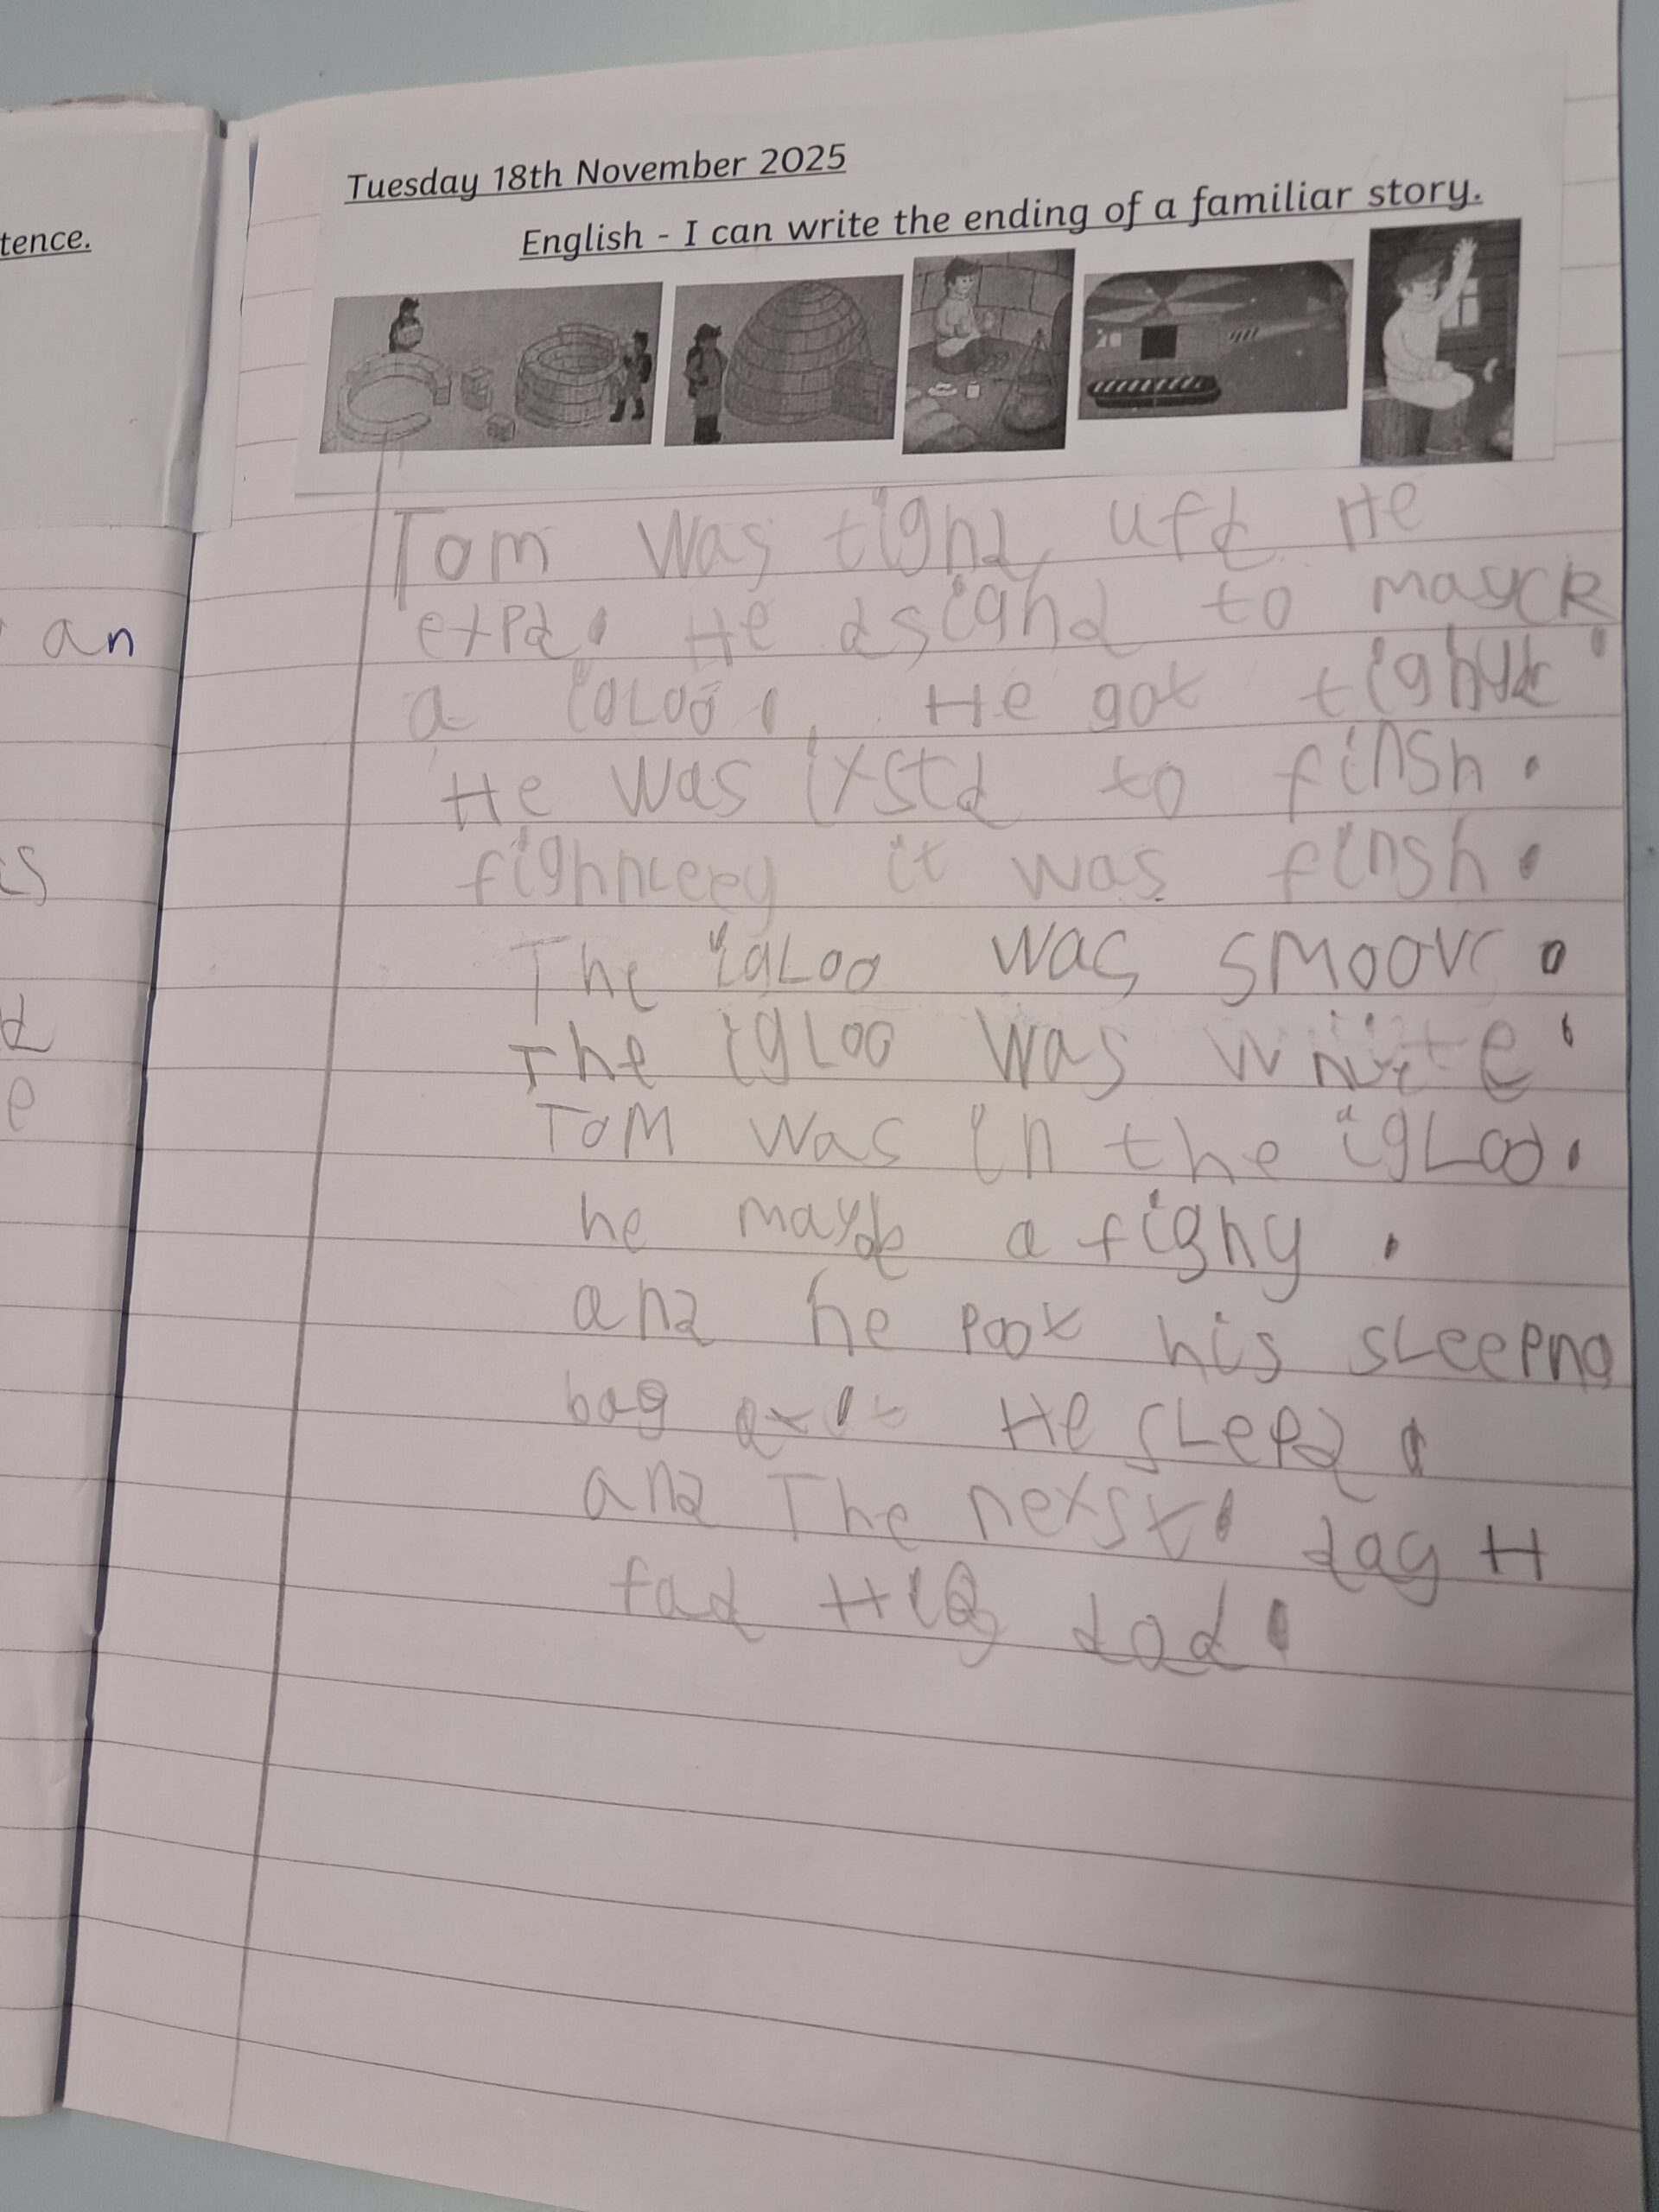 Tuesday 18th November 2025
English - I can write the ending of a familiar story.
tence.
an
s
d
e
Tom was tighd uft He
extpd. He dsighd to mayck
a igloo. He got
He was ixstd to finsh.
fighnleey it was finsh.
The igloo was smoove.
The igloo was white.
Tom was in the igloo.
he mayde a fighy.
and he poot his sleepng
bag He slepd.
and The nexst day H
fad His dad.